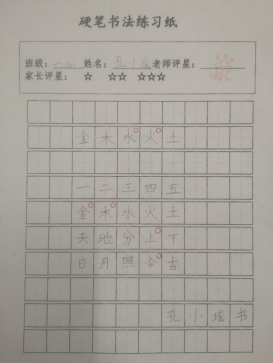 硬笔书法练习纸
班级: 姓名: 孔小瑶 老师评星:
家长评星: ☆ ☆☆ ☆☆☆
金木水火土
一二三四五
金木水火土
天地分上下
日月照今古
孔小瑶书